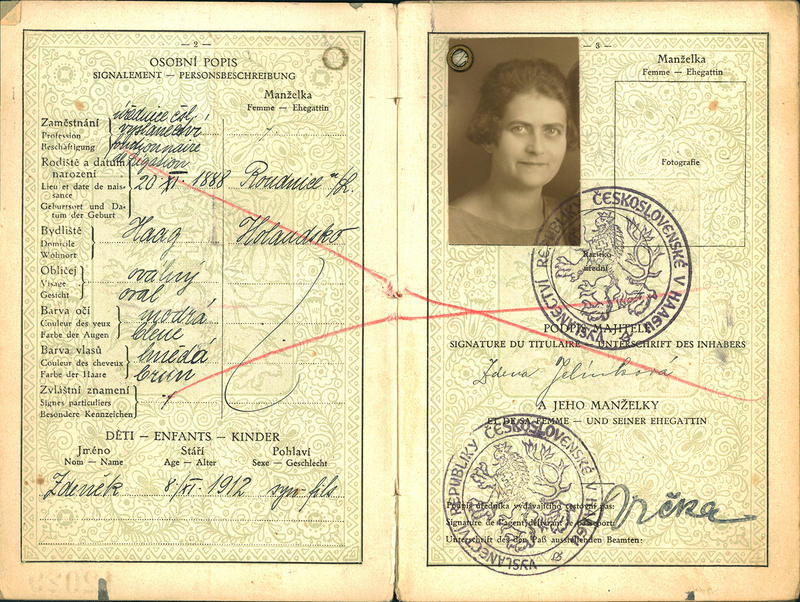 — 2 —
OSOBNÍ POPIS
SIGNALEMENT — PERSONSBESCHREIBUNG
Manželka
Femme — Ehegattin
Zaměstnání
Profession
Beschäftigung
úřednice čsl.
vyslanectví
délégation
Rodiště a datum narození
Lieu et date de naissance
Geburtsort und Datum der Geburt
20 XI. 1888 Roudnice n/L.
Bydliště
Domicile
Wohnort
Haag Holandsko
Obličej
Visage
Gesicht
oválný
oval
Barva očí
Couleur des yeux
Farbe der Augen
modrá
bleue
Barva vlasů
Couleur des cheveux
Farbe der Haare
hnědá
brun
Zvláštní znamení
Signes particuliers
Besondere Kennzeichen
DĚTI — ENFANTS — KINDER
Jméno
Nom — Name
Stáří
Age — Alter
Pohlaví
Sexe — Geschlecht
Zdeněk 8/XI. 1912 syn-fils
— 3 —
Manželka
Femme — Ehegattin
Fotografie
VYSLANECTVÍ REPUBLIKY ČESKOSLOVENSKÉ V HAAGU
Razítko
úřední
PODPIS MAJITELE
SIGNATURE DU TITULAIRE — UNTERSCHRIFT DES INHABERS
Zdena Jelínková
A JEHO MANŽELKY
ET DE SA FEMME — UND SEINER EHEGATTIN
VYSLANECTVÍ REPUBLIKY ČESKOSLOVENSKÉ V HAAGU
Podpis úředníka vydávajícího cestovní pas:
Signature de l'agent délivrant le passeport:
Unterschrift des den Paß ausstellenden Beamten: